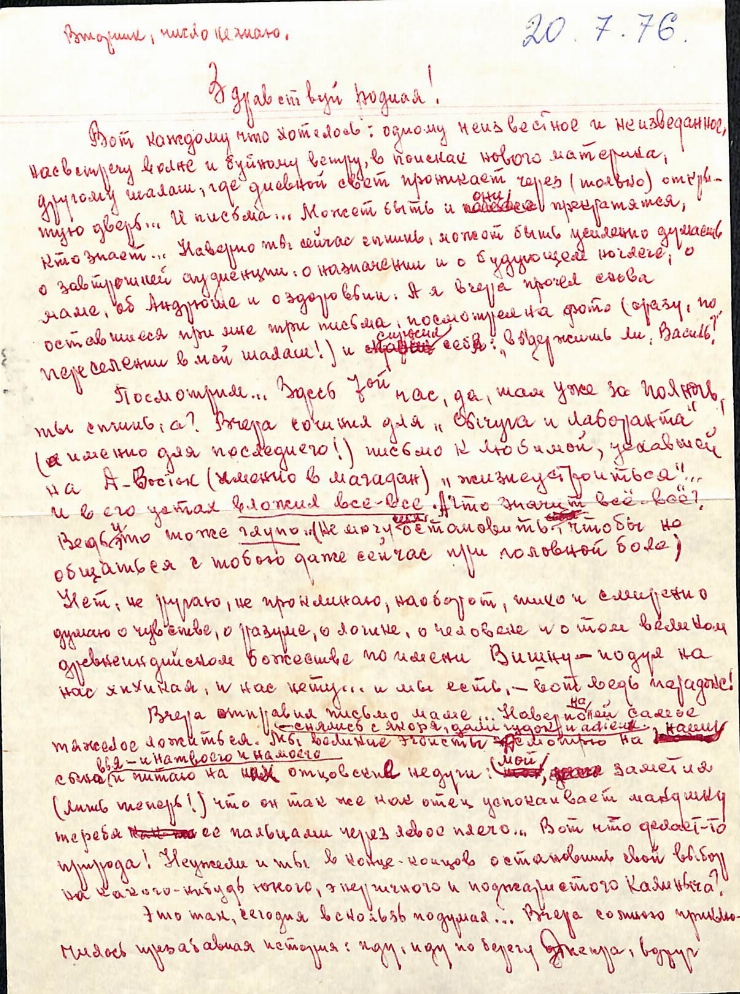 Вторник, число не знаю.
20.7.76.
Здравствуй родная!
Вот каждому что хотелось: одному неизвестное и неизведанное,
навстречу волне и буйному ветру, в поисках нового материка,
другому шалаш, где дневной свет проникает через (только) откры-
тую дверь... И письма... Может быть и они прекратятся,
кто знает... Наверно ты сейчас спишь, может быть усиленно думаешь
о завтрошней аудиенции: о назначении и о будующем ночлеге, о
маме, об Андрюше и о здоровьи. А я вчера прочел снова
оставшиеся при мне три письма, посмотрел на фото (сразу, по
переселении в мой шалаш!) и спросил себя: „выдержишь ли, Василь?"
Посмотрим... Здесь 7ой час, да, там уже за полночь,
ты спишь, а? Вчера сочинял для „ и лаборанта"
(а именно для последнего!) письмо к любимой, уехавшей
на Д-Восток (именно в Магадан) „жизнеустроиться"...
и в его устах вложил все-все. А что значит всё-всё?
Ведь это тоже глупо... (Не могу себя остановить, чтобы не
общаться с тобою даже сейчас при головной боле)
Нет, не ругаю, не проклинаю, наоборот, тихо и смиренно
думаю о чувстве, о разуме, о логике, о человеке и о том великом
древнеиндийском божестве по имени Вишну — подул на
нас и нас нету... и мы есть, — вот ведь парадокс!
Вчера отправил письмо маме... Наверно на ней самое
— снялись с якоря, дали гудок и adieu,
тяжелое ложиться. Мы великие эгоисты. Смотрю на
вья — и на твоего и на моего
сына и питаю на отцовские недуги: мой заметил
(лишь теперь!) что он так же как отец успокаивает
теребя ее пальцами через левое плечо... Вот что делает-то
природа! Неужели и ты в конце-концов остановишь свой выбор
на какого-нибудь юного, энергичного и поджаристого Калиныча?
Это так, сегодня вскользь подумал... Вчера со мною приклю-
чилось презабавная история: иду, иду по берегу Днепра, вдруг